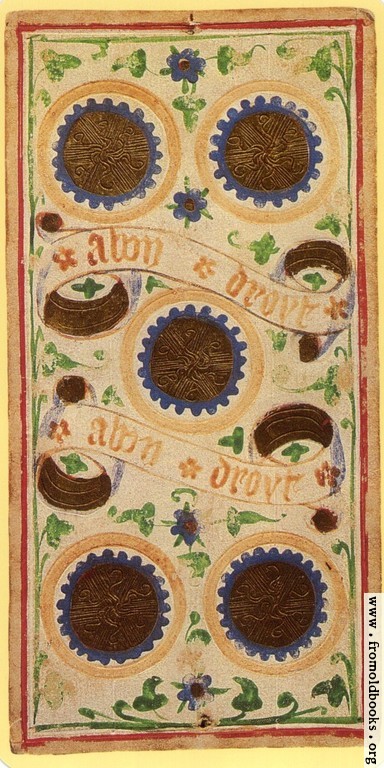 abon droyt
abon droyt
www.fromoldbooks.org